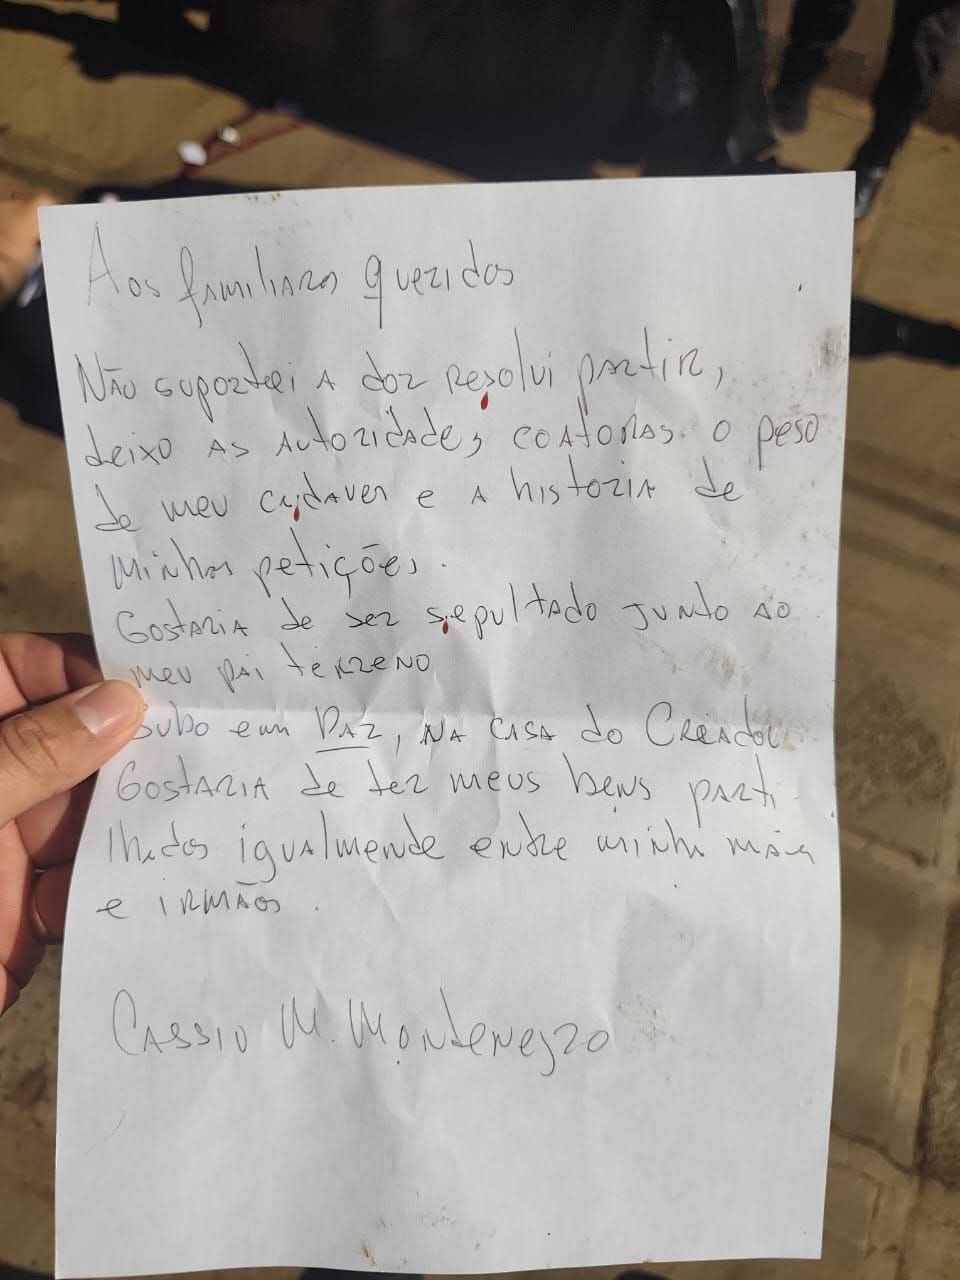 Aos familiares queridos
Não suportei a dor resolvi partir,
deixo as autoridades coatoras o peso
de meu cadaver e a historia de
minhas petições.
Gostaria de ser sepultado junto ao
meu pai terreno
Subo em PAZ, na casa do Creador
Gostaria de ter meus bens parti
lhados igualmende entre minha mãe
e irmãos.
Cassio M. Montenegro